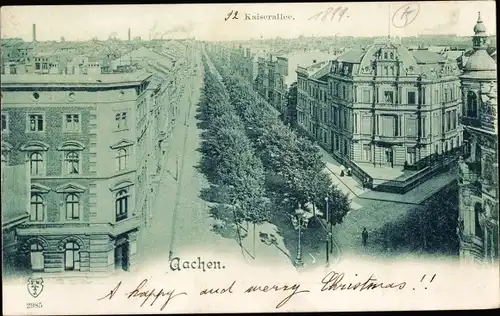 Kaiserallee.
1899
Aachen.
2985
A happy and merry Christmas!!